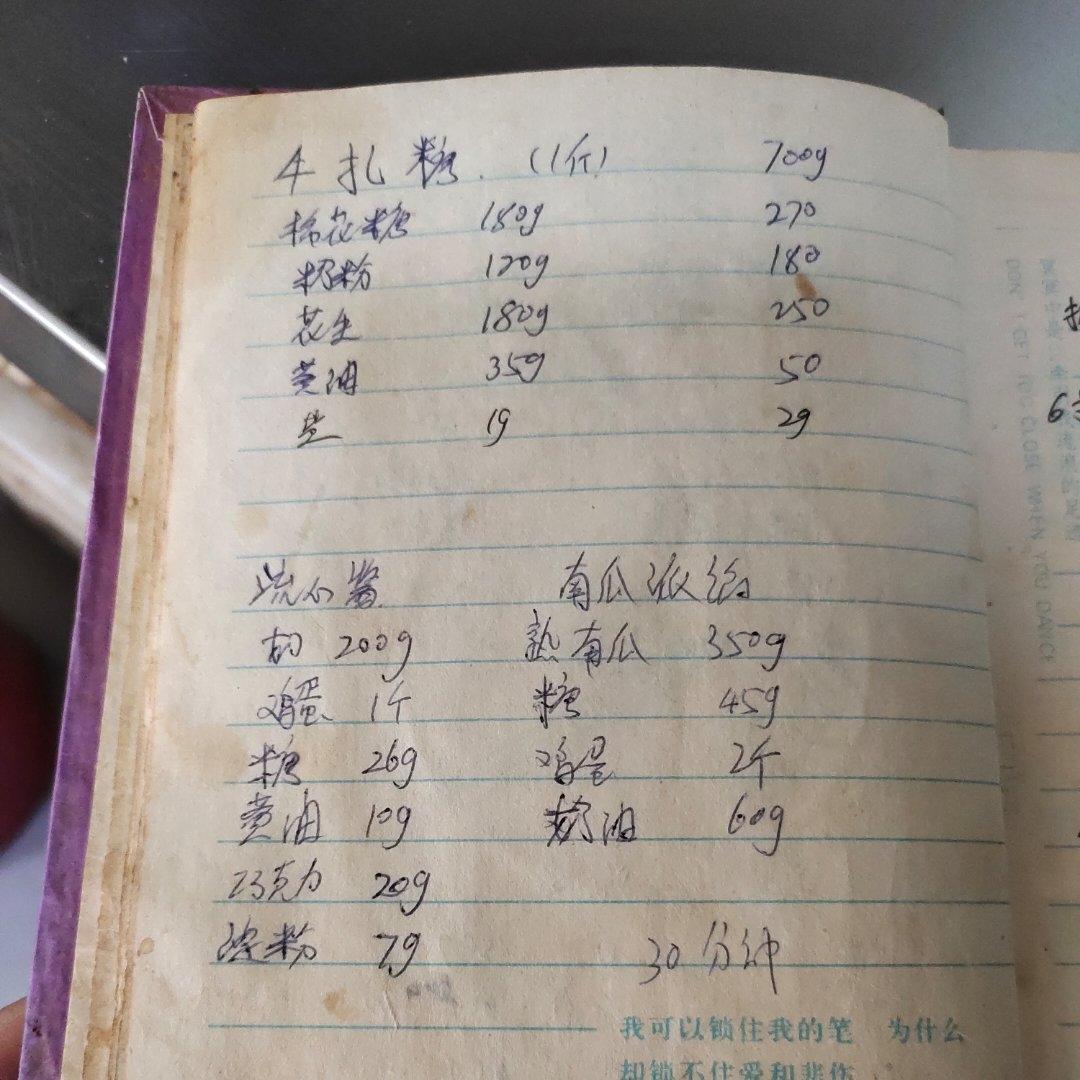 牛扎糖 (1斤) 700g
棉花糖 180g 270
奶粉 120g 180
花生 180g 250
黄油 35g 50
盐 1g 2g
流心酱 南瓜派馅
奶 200g 熟南瓜 350g
鸡蛋 1个 糖 45g
糖 26g 鸡蛋 2个
黄油 10g 奶油 60g
巧克力 20g
淀粉 7g 30分钟
我可以锁住我的笔 为什么
却锁不住爱和悲伤